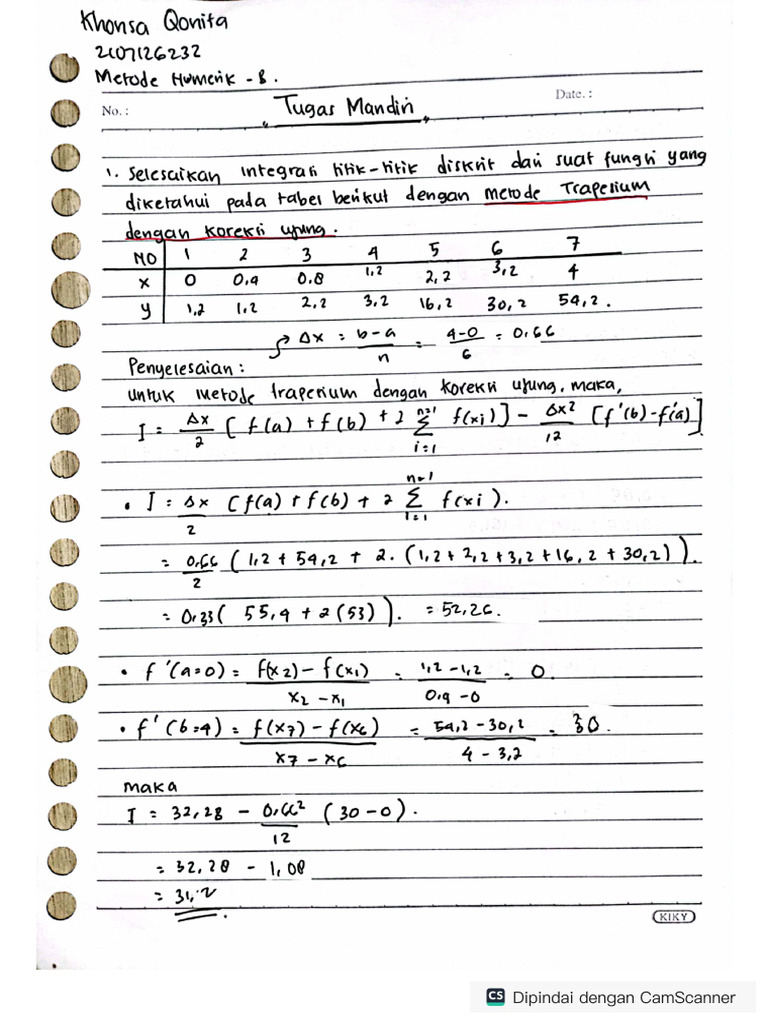 Khonsa Qonita
2107126232
Metode Numerik - B.
No. :
Date. :
"Tugas Mandiri"
1. Selesaikan integrasi titik-titik diskrit dari suat fungsi yang
diketahui pada tabel berikut dengan metode Trapesium
dengan koreksi ujung.
NO 1 2 3 4 5 6 7
x 0 0,4 0.8 1,2 2,2 3,2 4
y 1,2 1,2 2,2 3,2 16,2 30,2 54,2.
Δx = b-a/n = 4-0/6 = 0,66
Penyelesaian :
untuk metode trapesium dengan koreksi ujung, maka,
I = Δx/2 [f(a) + f(b) + 2 n=1 Σ i=1 f(xi)] - Δx²/12 [f'(b) - f'(a)]
• I = Δx/2 (f(a) + f(b) + 2 n=1 Σ i=1 f(xi).
= 0,66/2 (1,2 + 54,2 + 2. (1,2 + 2,2 + 3,2 + 16,2 + 30,2)).
= 0,33 ( 55,4 + 2 (53)). = 52,26.
• f'(a=0) = f(x2) - f(x1)/x2 - x1 = 1,2 - 1,2/0,4 - 0 = 0.
• f'(b=4) = f(x7) - f(x6)/x7 - x6 = 54,2 - 30,2/4 - 3,2 = 30.
maka
I = 32,28 - 0,66²/12 (30 - 0).
= 32,28 - 1,08
= 31,2
KIKY
CS Dipindai dengan CamScanner